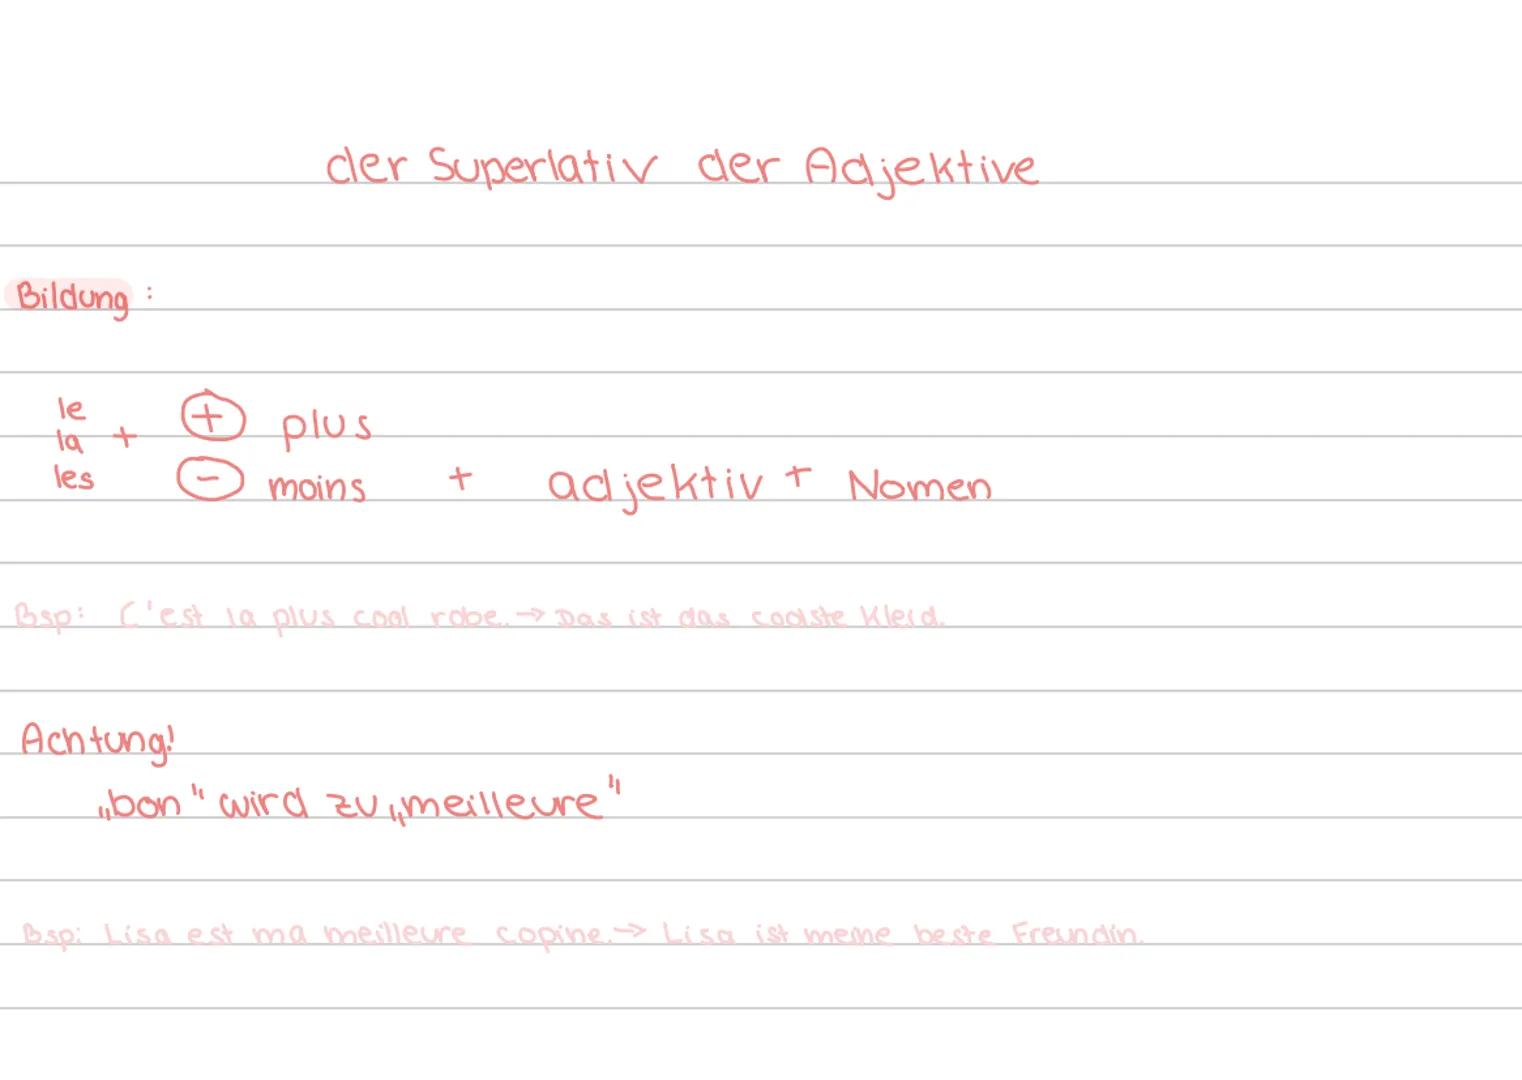 der Superlativ der Adjektive
Bildung :
le
la + + plus
les - moins + adjektiv + Nomen
Bsp: C'est la plus cool robe. → Das ist das coolste Kleid.
Achtung!
„bon" wird zu „meilleure"
Bsp: Lisa est ma meilleure copine. → Lisa ist meine beste Freundin.